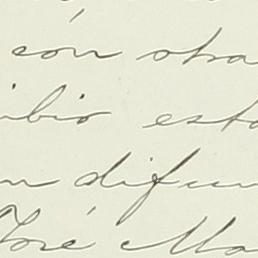 cón otra
ibio est
n difun
José Ma